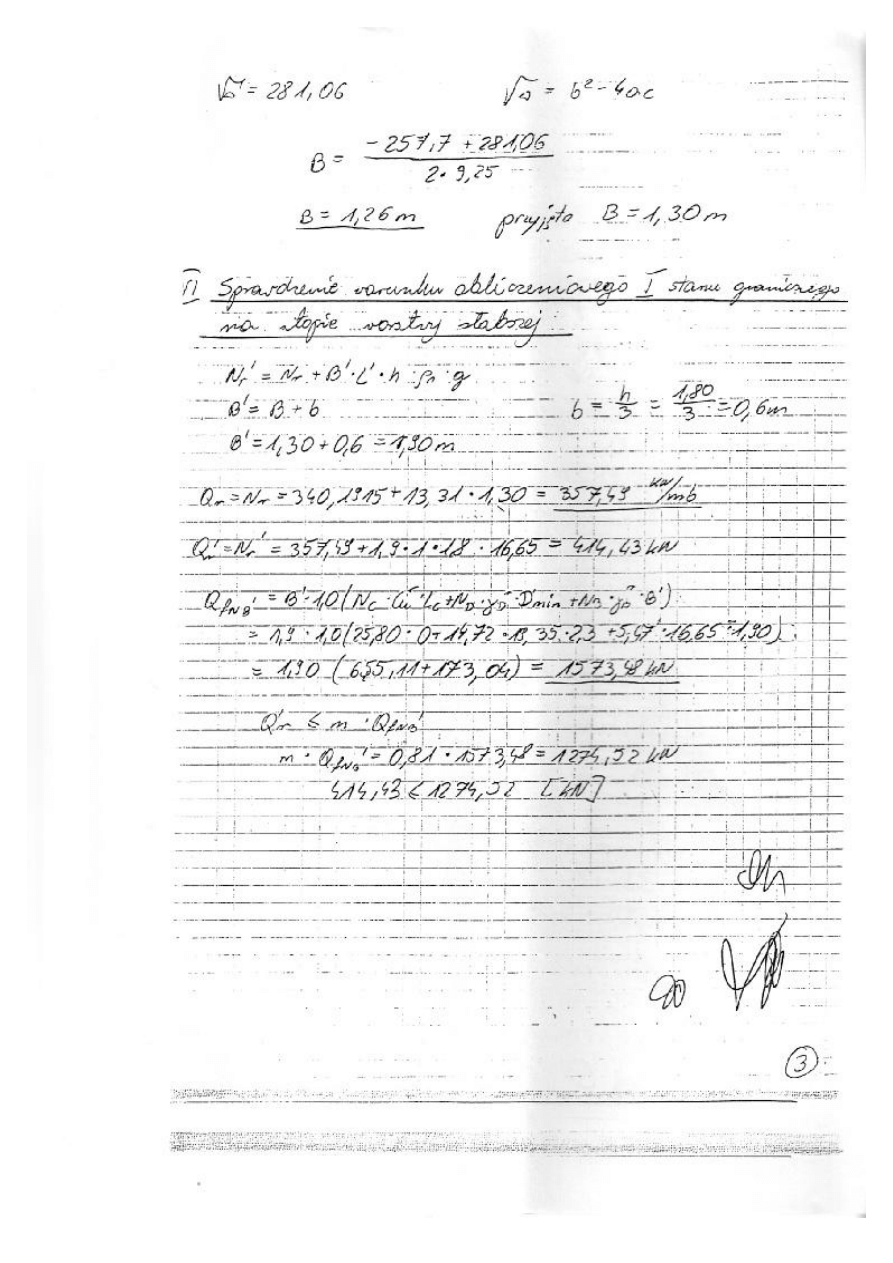 √Δ = 281,06 √Δ = b² - 4ac
B = (-257,7 + 281,06) / (2 · 9,25)
B = 1,26 m przyjęto B = 1,30 m
II Sprawdzenie warunku obliczeniowego I stanu granicznego
na stopie warstwy słabszej:
Nr' = Nr + B' · L' · h · ρn · g
B' = B + b b = h/3 = 1,80/3 = 0,6m
B' = 1,30 + 0,6 = 1,90 m
Qr = Nr = 340,1915 + 13,31 · 1,30 = 357,49 kN/mb
Qr' = Nr' = 357,49 + 1,9 · 1 · 1,8 · 16,65 = 414,43 kN
QfNB' = B' · 1,0 (Nc · Cu · ic + ND · γD · D'min + NB · γB · B')
= 1,9 · 1,0 (25,80 · 0 + 14,72 · 19,35 · 2,3 + 5,47 · 16,65 · 1,90)
= 1,90 (655,11 + 173,04) = 1573,48 kN
Q'r ≤ m · QfNB'
m · QfNB' = 0,81 · 1573,48 = 1274,52 kN
414,43 < 1274,52 [kN]
3